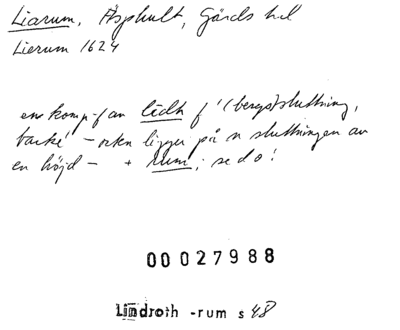 Liarum, Asphult, Gärds hd
Lierum 1624
en komp. f an līdh f '(bergs)sluttning,
backe' – orten ligger på n sluttningen av
en höjd – + rum; se d o!
00027988
Lindroth -rum s 48